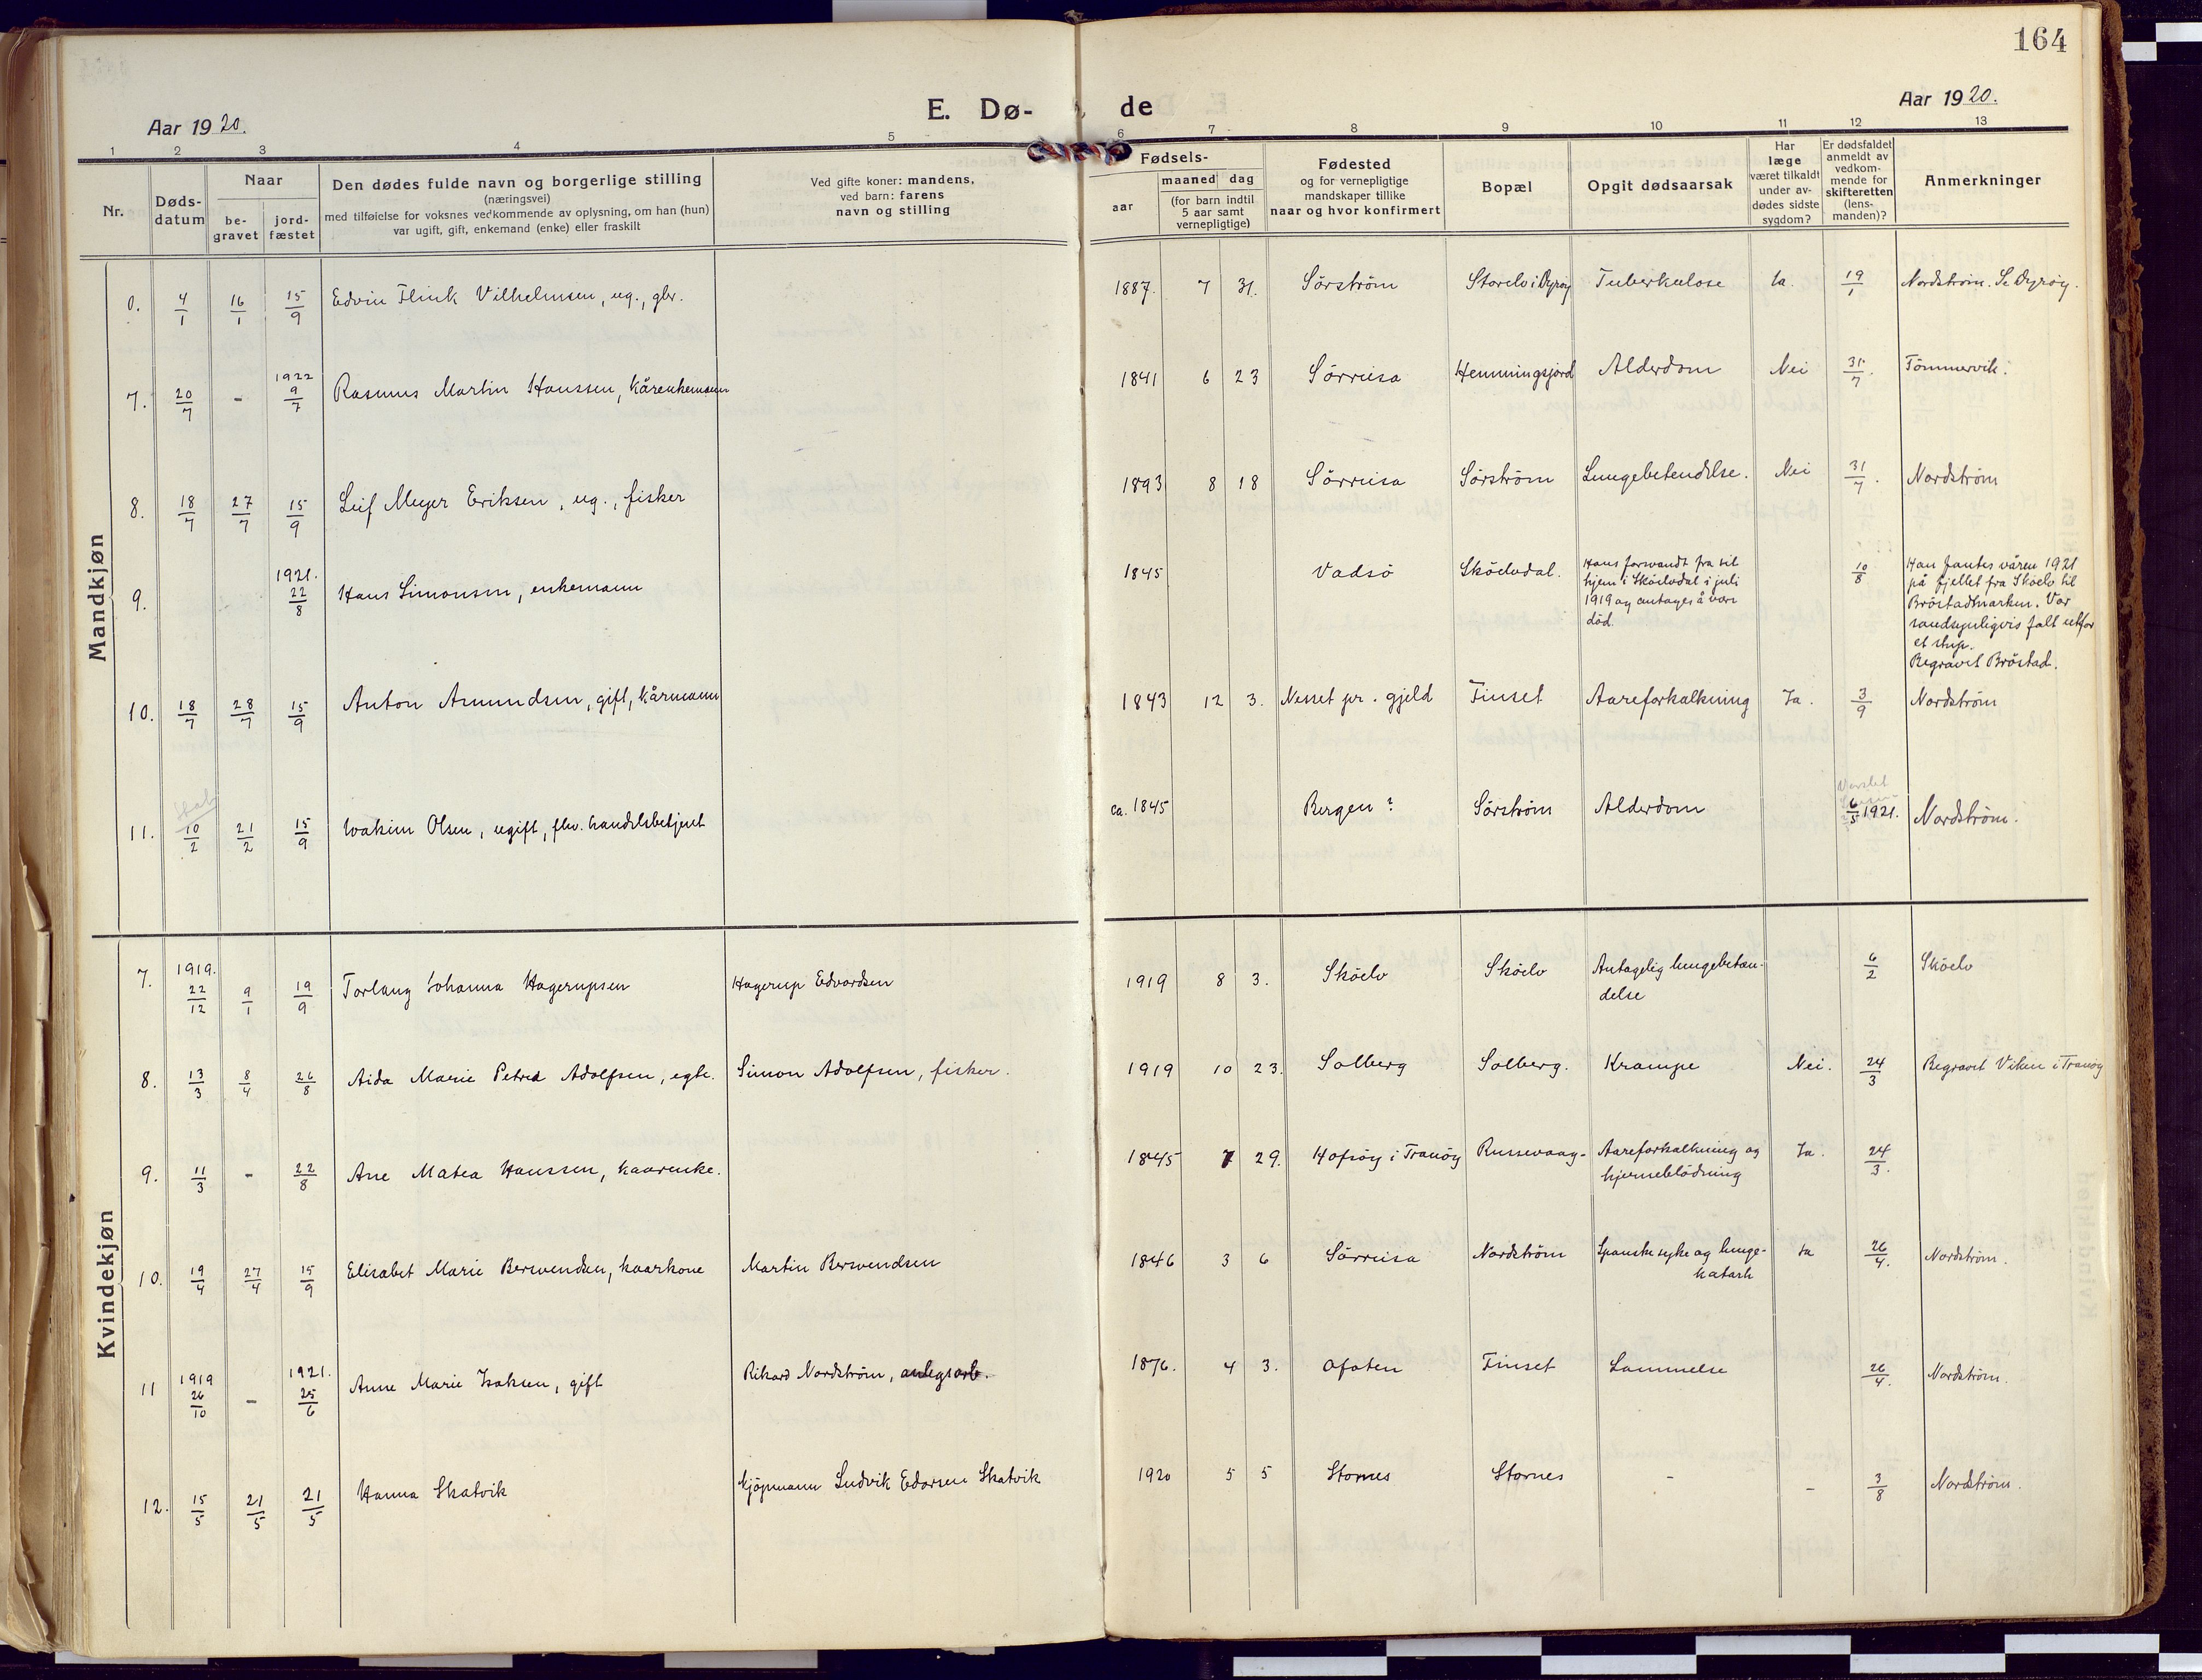 164
Aar 1920.
E. Dø- de
Aar 1920.
1 2 3 4 5 6 7 8 9 10 11 12 13
Nr.
Døds-
datum
Naar
be-
gravet
jord-
fæstet
Den dødes fulde navn og borgerlige stilling
(næringsvei)
med tilføielse for voksnes vedkommende av oplysning, om han (hun)
var ugift, gift, enkemand (enke) eller fraskilt
Ved gifte koner: mandens,
ved barn: farens
navn og stilling
Fødsels-
aar
maaned dag
(for barn indtil
5 aar samt
vernepligtige)
Fødested
og for vernepligtige
mandskaper tillike
naar og hvor konfirmert
Bopæl
Opgit dødsaarsak
Har
læge
været tilkaldt
under av-
dødes sidste
sygdom?
Er dødsfaldet
anmeldt av
vedkom-
mende for
skifteretten
(lens-
manden)?
Anmerkninger
Mandkjøn
0. 4/1 16/1 15/9 Edvin Flink Vilhelmsen, ug., gbr. 1887. 7 31. Sørstrøm Storelv i Dyrøy Tuberkulose Ja. 19/1 Nordstrøm. Se Dyrøy.
7. 20/7 - 1922 9/7 Rasmus Martin Hanssen, kårenkemann 1841 6 23 Sørreisa Hemmingsjord Alderdom Nei 31/7. Tømmervik.
8. 18/7 27/7 15/9 Leif Meyer Eriksen, ug., fisker 1893 8 18 Sørreisa Sørstrøm Lungebetendelse. Nei 31/7. Nordstrøm
9. 1921. 22/8 Hans Simonsen, enkemann 1845 Vadsö Sköelvdal. Hans forsvandt fra sit
hjem i Sköelvdal i juli
1919 og antages å være
död.
10/8 Han fantes våren 1921
på fjellet fra Sköelv til
Bröstadmarken. Var
sandsynligvis falt utfor
et stup.
Begravet Bröstad.
10. 18/7 28/7 15/9 Anton Amundsen, gift, kårmann 1843 12 3. Nesset pr. gjeld Finset Aareforkalkning Ja. 3/9 Nordstrøm
11. 10/2 21/2 15/9 Joakim Olsen, ugift, fhv. handelsbetjent ca. 1845 Bergen? Sørstrøm Alderdom 6/5 1921. Nordstrøm.
Kvindekjøn
7. 1919. 22/12 9/1 19/9 Torlaug Johanna Hagerupsen Hagerup Edvardsen 1919 8 3. Sköelv Sköelv Antagelig lungebetæn-
delse
6/2 Sköelv
8. 13/3 8/4 26/8 Aida Marie Petrea Adolfsen, egte. Simon Adolfsen, fisker. 1919 10 23. Solberg Solberg. Krampe Nei. 24/3 Begravet Viken i Tranøy
9. 11/3 - 22/8 Ane Matea Hanssen, kaarenke. 1845 7 29. Hofsöy i Tranöy Russevaag- Aareforkalkning og
hjerneblödning
Ja. 24/3.
10. 19/4 27/4 15/9 Elisabet Marie Bersvendsen, kaarkone Martin Bersvendsen 1846 3 6 Sørreisa Nordstrøm Spanske syke og lunge-
katarh
Ja 26/4. Nordstrøm.
11 1919 26/10 - 1921. 25/6 Anne Marie Isaksen, gift Rikard Nordstrøm, anlegsarb. 1876. 4 3. Ofoten Finset Lammelse 26/4. Nordstrøm.
12. 15/5 21/5 21/5 Hanna Skatvik Kjöpmann Ludvik Edorsen Skatvik 1920 5 5 Stornes Stornes - - 3/8 Nordstrøm.